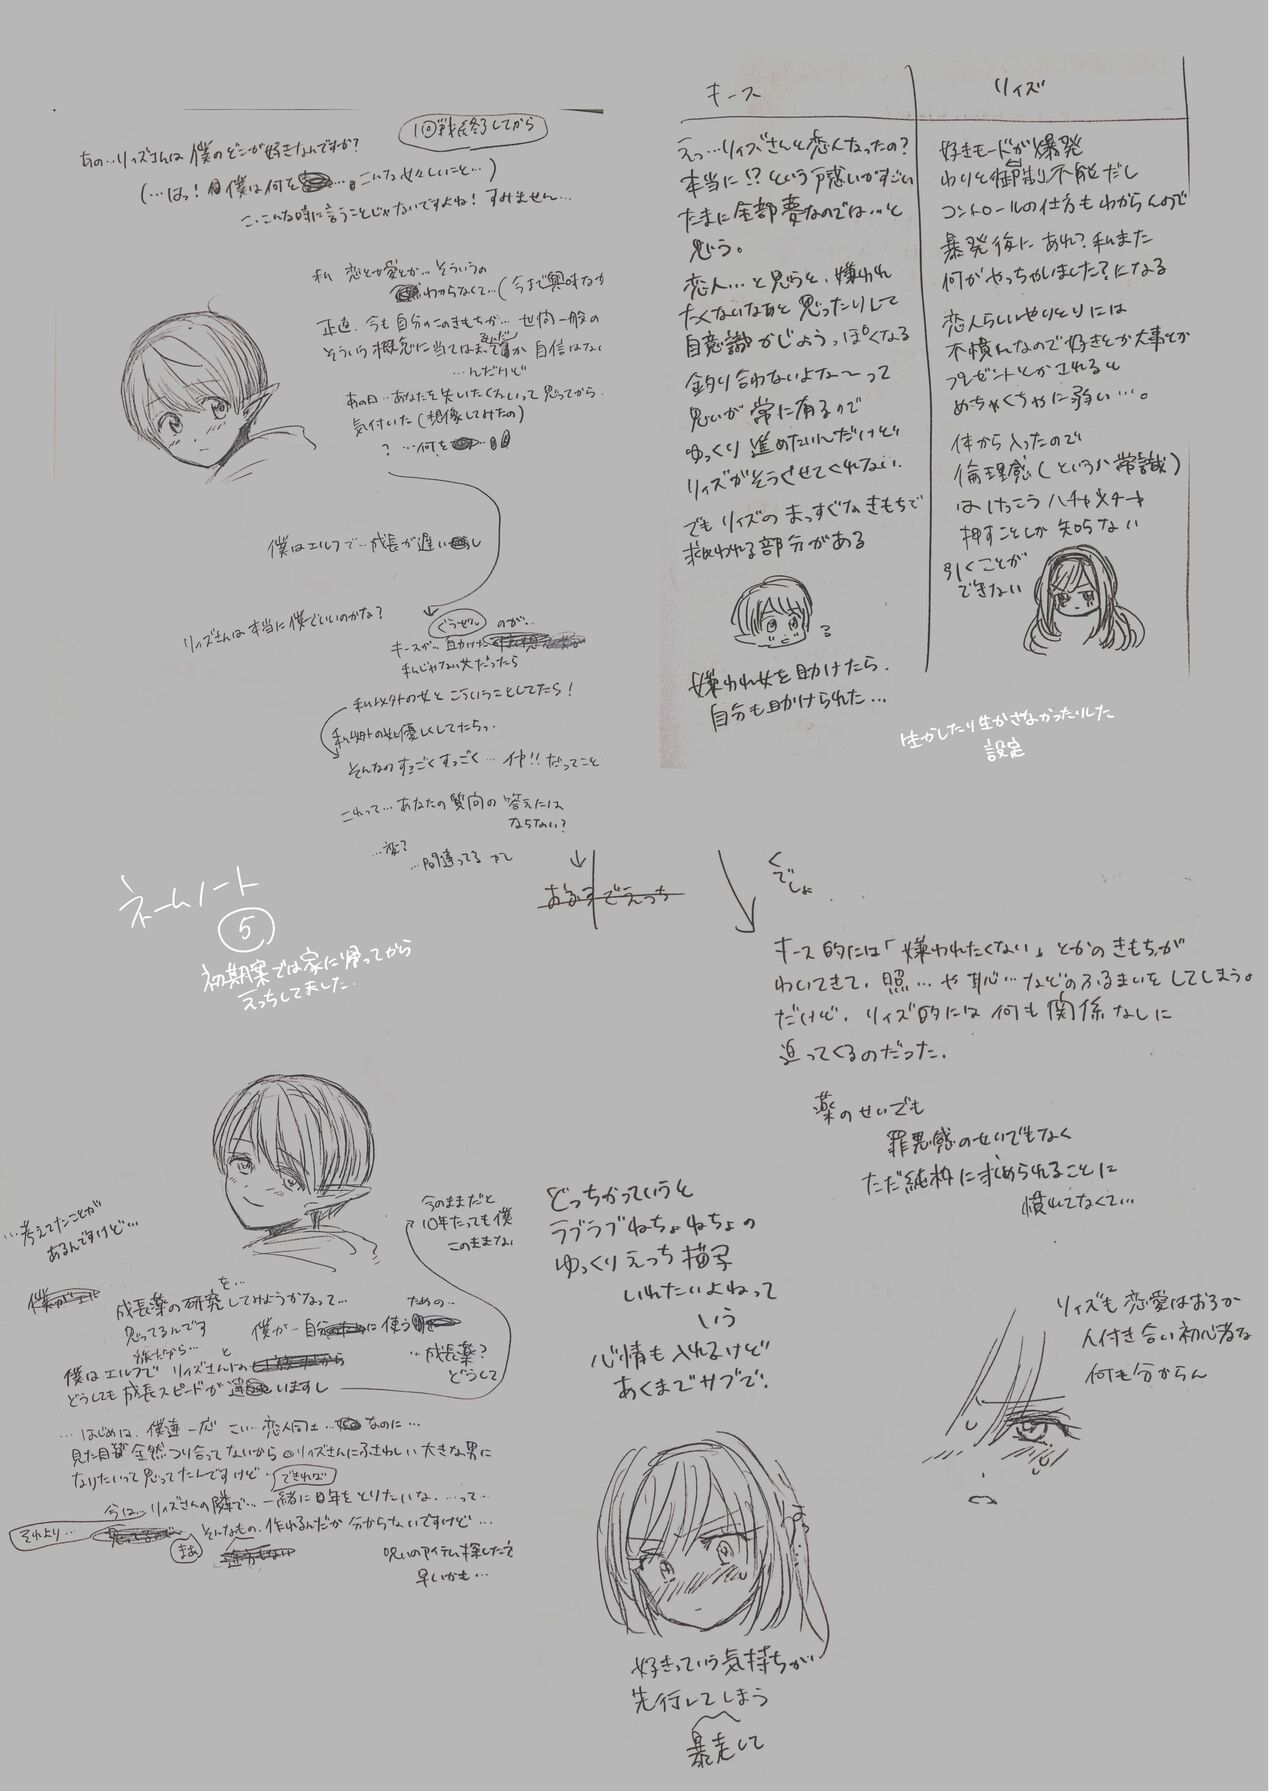 1回戦終了してから
あの…リィズさんは僕のどこが好きなんですか?
(…はっ! 僕は何を…こんな女々しいこと…)
こ、こんな時に言うことじゃないですよね! すみません…
私 恋とか愛とか…そういうの
わからなくて…(今まで興味なか
正直、今も自分のこのきもちが… 世間一般の
そういう概念に当てはま
自信はない
…んだけど
あの日…あなたを失いたくないって思ってから
気付いた(想像してみたの)
? …何を
僕はエルフで…成長が遅いし
リィズさんは本当に僕でいいのかな?
ぐうぜん のが…
キースが…助けた
私じゃない女だったら
私以外の女とこういうことしてたら!
私以外の女に優しくしてたらっ
そんなのすっごくすっごく…イヤ!!だってこと
これって…あなたの質問の答えには
ならない?
…変?
…間違ってる
ネームノート
⑤
初期案では家に帰ってから
えっちしてました。
キース
えっ…リィズさんと恋人なったの?
本当に!?という戸惑いがすごい
たまに全部夢なのでは…と
思う。
恋人…と思うと、嫌われ
たくないなあと思ったりして
自意識かじょうっぽくなる
釣り合わないよな〜って
思いが常に有るので
ゆっくり進めたいんだけど
リィズがそうさせてくれない
でもリィズのまっすぐなきもちで
救われる部分がある
嫌われ女を助けたら、
自分も助けられた…
リィズ
好きモードが爆発
わりと制御不能だし
コントロールの仕方もわからんので
暴発後にあれ?私また
何かやっちゃいました?になる
恋人らしいやりとりには
不慣れなので好きとか大事とか
プレゼントとかされると
めちゃくちゃに弱い…。
体から入ったので
倫理感(というか常識)
はけっこうハチャメチャ
押すことしか知らない
引くことが
できない
生かしたり生かさなかったりした
設定
おうちでえっち
くっ
でしょ
キース的には「嫌われたくない」とかのきもちが
わいてきて、照…や恥…などのふるまいをしてしまう。
だけど、リィズ的には何も関係なしに
迫ってくるのだった。
薬のせいでも
罪悪感のせいでもなく
ただ純粋に求められることに
慣れてなくて…
どっちかっていうと
ラブラブねちょねちょの
ゆっくりえっち描写
いれたいよねって
いう
心情も入れるけど
あくまでサブで。
リィズも恋愛はおろか
人付き合い初心者な
何も分からん
好きっていう気持ちが
先行してしまう
暴走して
…考えてたことが
あるんですけど…
今のままだと
10年たっても僕
このままな
を…
成長薬の研究してみようかなって…
思ってるんです
ための…
僕が…自分に使う
…成長薬?
どうして
族だから… と
僕はエルフで リィズさんは
どうしても成長スピードが違いますし
…はじめは、僕達一応 こい…恋人同士…なのに…
見た目が全然つり合ってないからリィズさんにふさわしい大きな男に
なりたいって思ってたんですけど
できれば
今は…リィズさんの隣で…一緒に年をとりたいな…って…
それより…
まあ
そんなもの、作れるんだか分からないですけど…
呪いのアイテム探した方
早いかも…